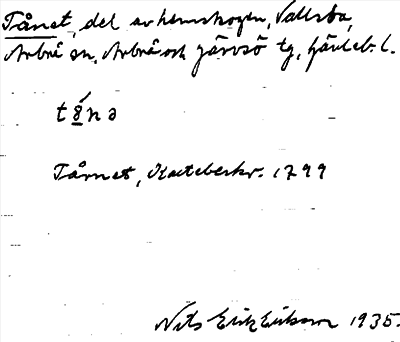 Tånet, del av hemskogen, Vallsbo,
Arbrå sn, Arbrå och Järvsö tg, Gävleb. l.
t8́nə
Tårnet, Kartebeskr. 1799
Nils Erik Eriksson 1935.